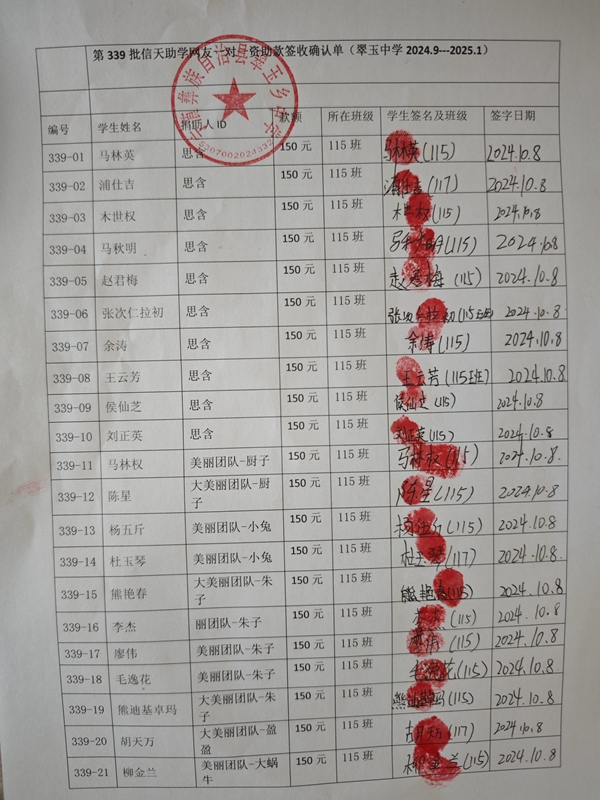 第 339 批信天助学网友一对一资助款签收确认单（翠玉中学 2024.9---2025.1）
彝族自治县翠玉乡中学
5307002024332
编号 学生姓名 捐助人 ID 款额 所在班级 学生签名及班级 签字日期
339-01 马林英 思含 150 元 115 班 马林英(115) 2024.10.8
339-02 浦仕吉 思含 150 元 115 班 浦仕吉(117) 2024.10.8
339-03 木世权 思含 150 元 115 班 木世权(115) 2024.10.8
339-04 马秋明 思含 150 元 115 班 马秋明(115) 2024.10.8
339-05 赵君梅 思含 150 元 115 班 赵君梅(115) 2024.10.8
339-06 张次仁拉初 思含 150 元 115 班 张次仁拉初(115班) 2024.10.8
339-07 余涛 思含 150 元 115 班 余涛(115) 2024.10.8
339-08 王云芳 思含 150 元 115 班 王云芳(115班) 2024.10.8
339-09 侯仙芝 思含 150 元 115 班 侯仙芝(115) 2024.10.8
339-10 刘正英 思含 150 元 115 班 刘正英(115) 2024.10.8
339-11 马林权 美丽团队-厨子 150 元 115 班 马林权(115) 2024.10.8
339-12 陈星 大美丽团队-厨 150 元 115 班 陈星(115) 2024.10.8
子
339-13 杨五斤 美丽团队-小兔 150 元 115 班 杨伍斤(115) 2024.10.8
339-14 杜玉琴 美丽团队-小兔 150 元 115 班 杜玉琴(117) 2024.10.8.
339-15 熊艳春 大美丽团队-朱 150 元 115 班 熊艳春(115) 2024.10.8
子
339-16 李杰 丽团队-朱子 150 元 115 班 李杰(115) 2024.10.8
339-17 廖伟 美丽团队-朱子 150 元 115 班 廖伟(115) 2024.10.8
339-18 毛逸花 美丽团队-朱子 150 元 115 班 毛逸花(115) 2024.10.8
339-19 熊迪基卓玛 大美丽团队-朱 150 元 115 班 熊迪基卓玛(115) 2024.10.8
子
339-20 胡天万 大美丽团队-盈 150 元 115 班 胡天万(117) 2024.10.8
盈
339-21 柳金兰 美丽团队-大蜗 150 元 115 班 柳金兰(115) 2024.10.8
牛